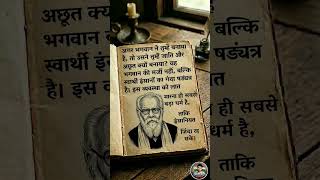 अगर भगवान ने तुम्हें बनाया
है, तो उसने तुम्हें जाति और
अछूत क्यों बनाया? यह
भगवान की मर्जी नहीं, बल्कि
स्वार्थी इंसानों का गंदा षड्यंत्र
है। इस व्यवस्था को लात
मारना ही सबसे
बड़ा धर्म है,
ताकि
इंसानियत
जिंदा रह
सके।
अछूत क्य
भगवान
स्वार्थी
है। इस
ही सबसे
धर्म है,
ताकि